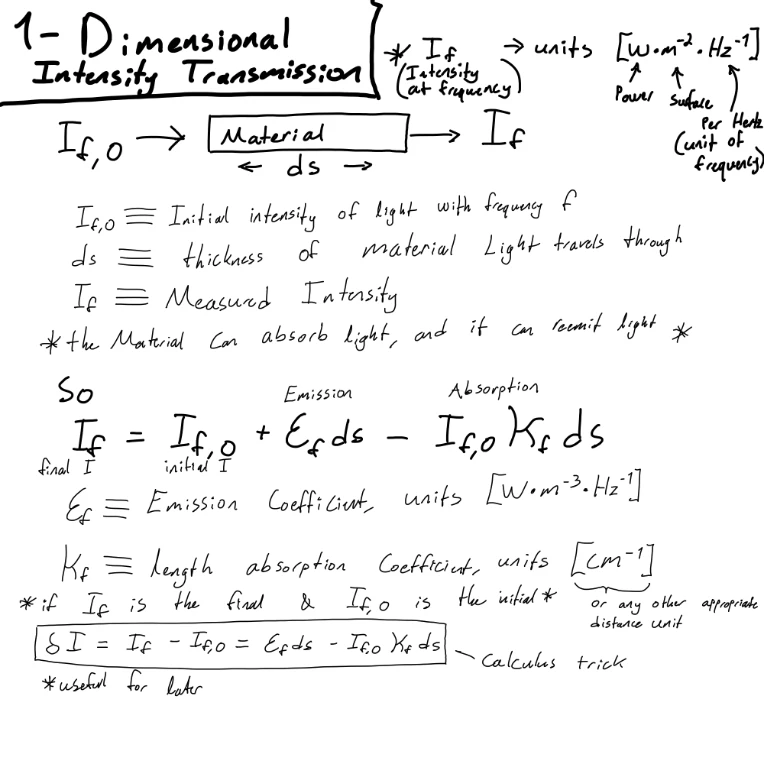 1-Dimensional
Intensity Transmission
* I_f → units [W·m⁻²·Hz⁻¹]
(Intensity at frequency)
Power Surface Per Hertz (unit of frequency)
I_f,0 → Material → I_f
← ds →
I_f,0 ≡ Initial intensity of light with frequency f
ds ≡ thickness of material Light travels through
I_f ≡ Measured Intensity
* the Material can absorb light, and it can reemit light *
So
Emission Absorption
I_f = I_f,0 + ε_f ds − I_f,0 K_f ds
final I initial I
ε_f ≡ Emission Coefficient, units [W·m⁻³·Hz⁻¹]
K_f ≡ length absorption Coefficient, units [cm⁻¹]
or any other appropriate
distance unit
* if I_f is the final & I_f,0 is the initial *
δI = I_f − I_f,0 = ε_f ds − I_f,0 K_f ds
Calculus trick
* useful for later